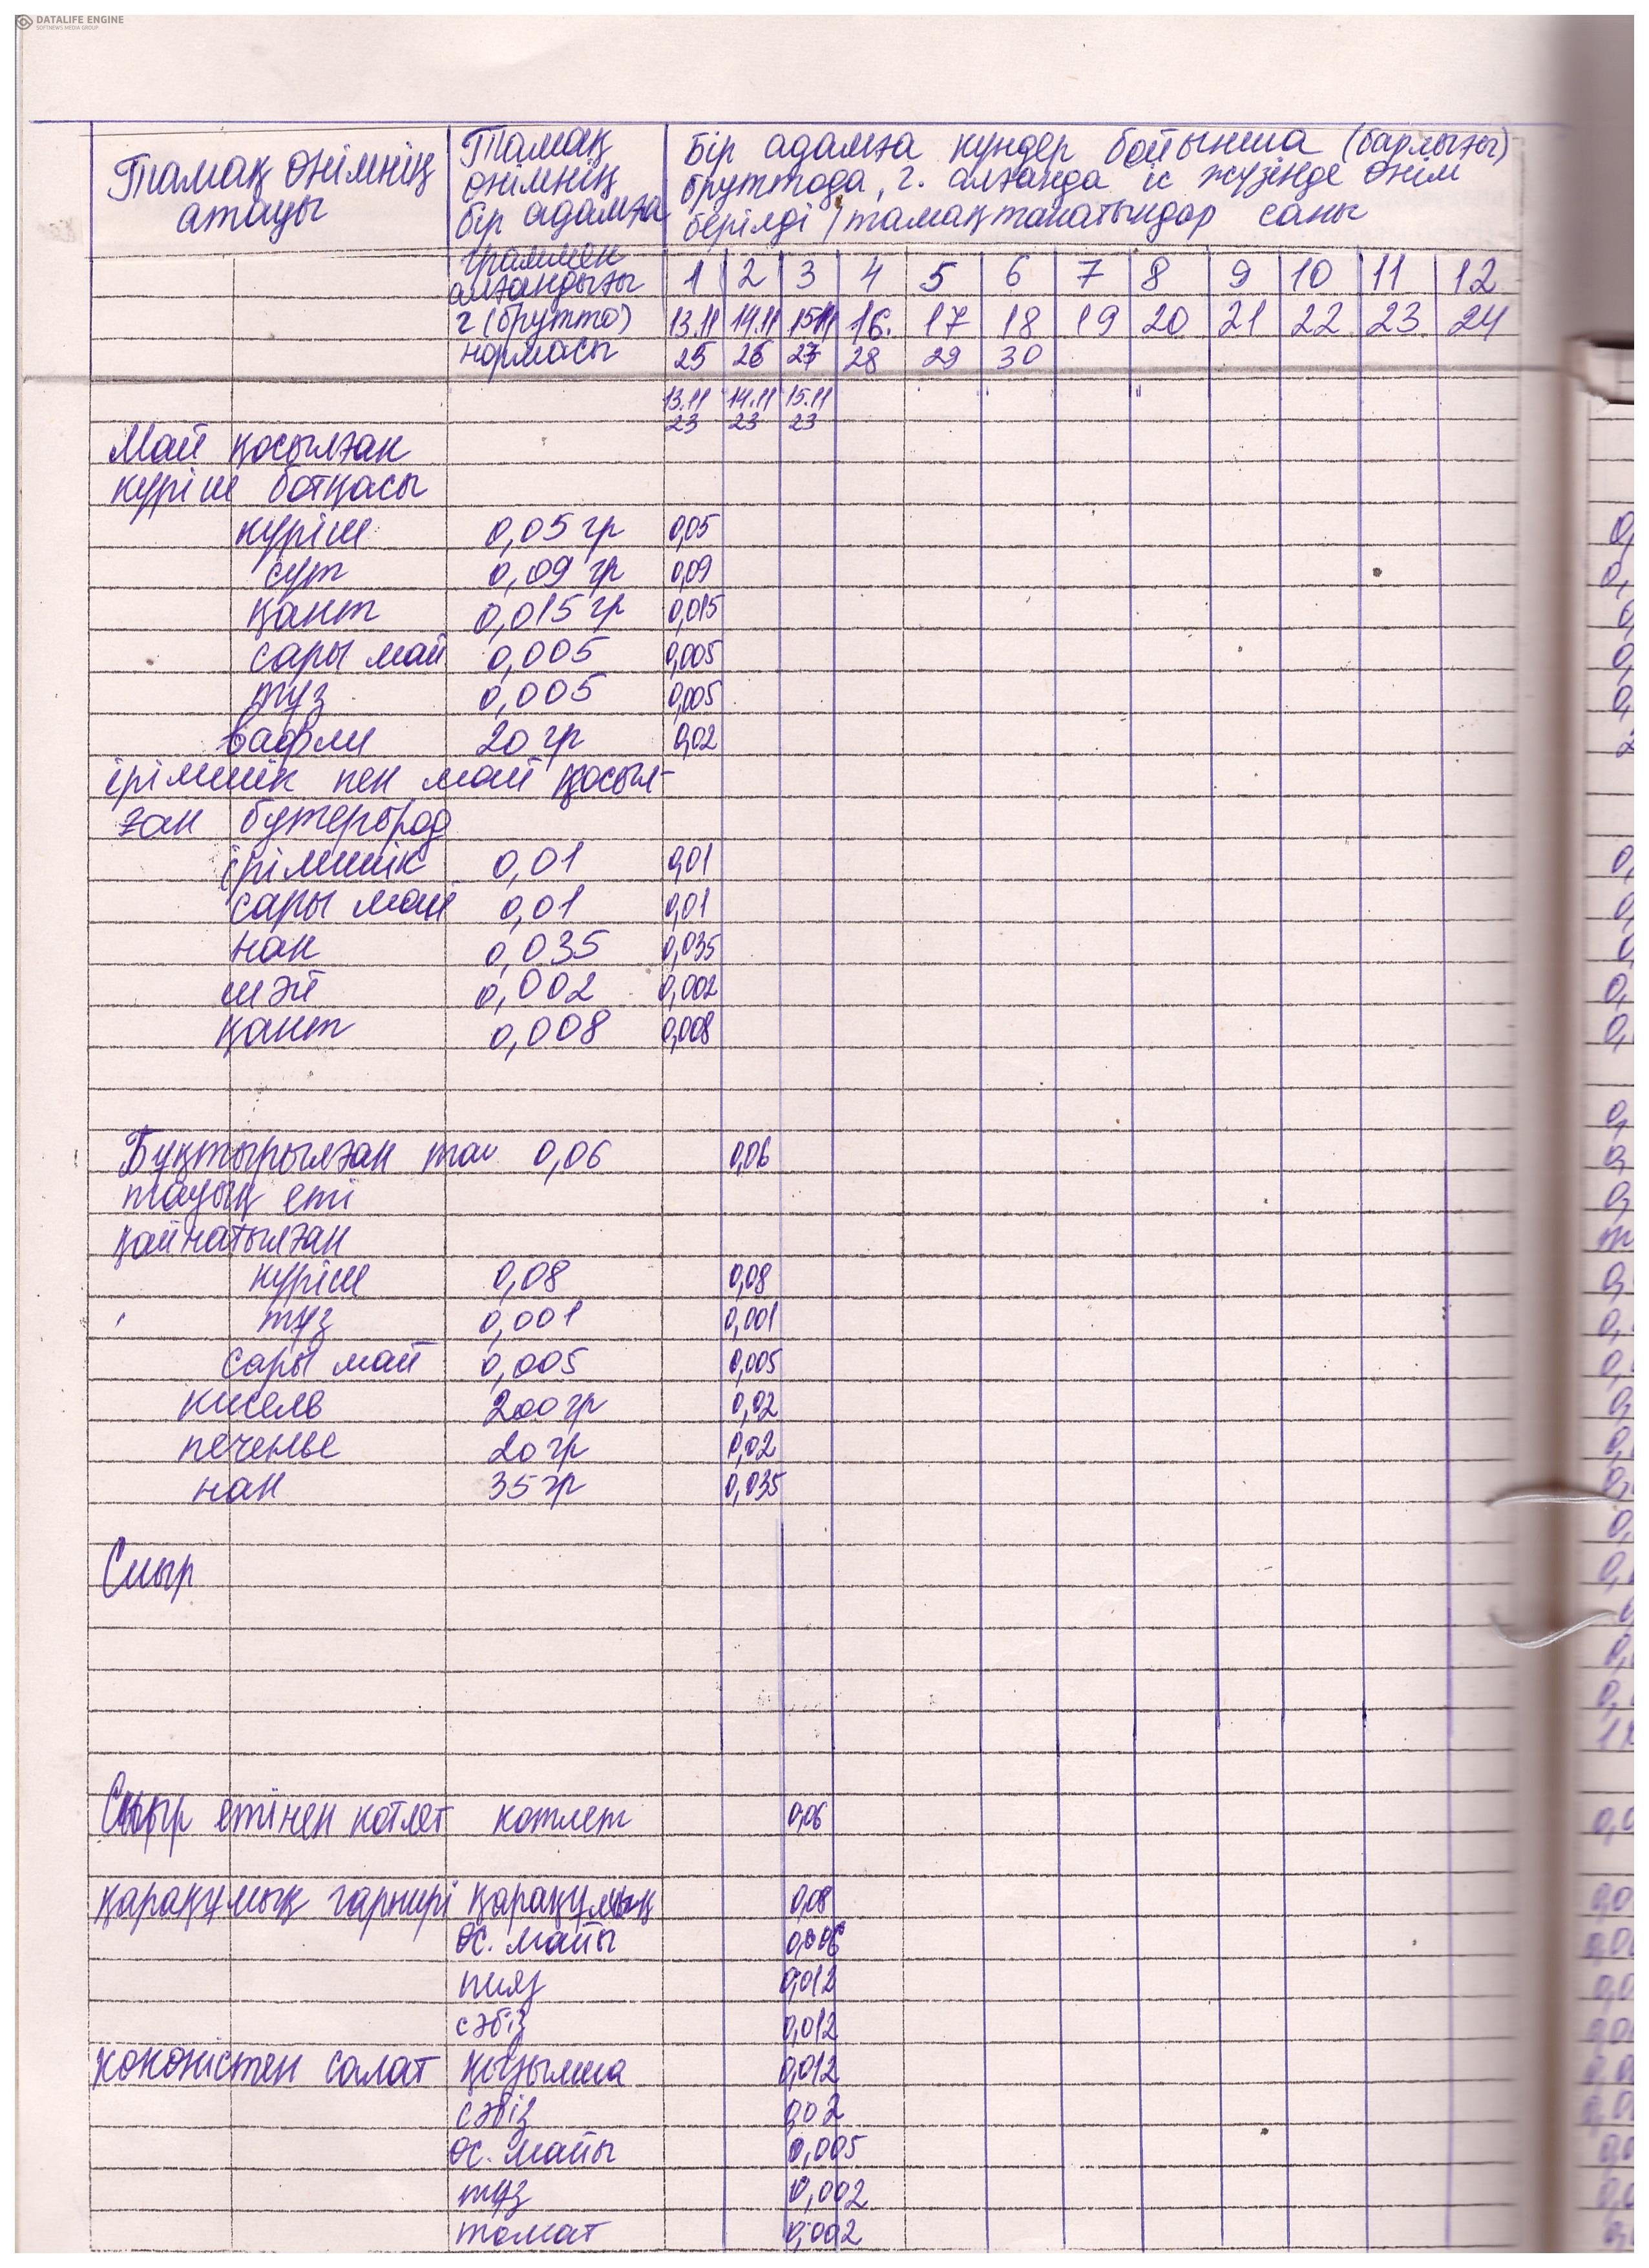 DATALIFE ENGINE
SOFTNEWS MEDIA GROUP
Тамақ өнімнің атауы
Тамақ өнімнің бір адамға граммен алғандағы г (брутто) нормасы
Бір адамға күндер бойынша (барлығы)
бруттода, г. алғанда іс жүзінде өнім
берілді / тамақтанатындар саны
1 2 3 4 5 6 7 8 9 10 11 12
13.11 14.11 15.11 16. 17 18 19 20 21 22 23 24
25 26 27 28 29 30
13.11 14.11 15.11
23 23 23
Май қосылған
күріш ботқасы
күріш 0,05 гр 0,05
сүт 0,09 гр 0,09
қант 0,015 гр 0,015
сары май 0,005 0,005
тұз 0,005 0,005
вафли 20 гр 0,02
ірімшік пен май қосыл-
ған бутерброд
ірімшік 0,01 0,01
сары май 0,01 0,01
нан 0,035 0,035
шәй 0,002 0,002
қант 0,008 0,008
Бұқтырылған 0,06 0,06
тауық еті
қайнатылған
күріш 0,08 0,08
тұз 0,001 0,001
сары май 0,005 0,005
кисель 200 гр 0,02
печенье 20 гр 0,02
нан 35 гр 0,035
Сиыр
Сиыр етінен котлет котлет 0,06
қарақұмық гарнирі қарақұмық 0,08
өс. майы 0,006
пияз 0,012
сәбіз 0,012
көкөністен салат қызылша 0,012
сәбіз 0,02
өс. майы 0,005
тұз 0,002
томат 0,002